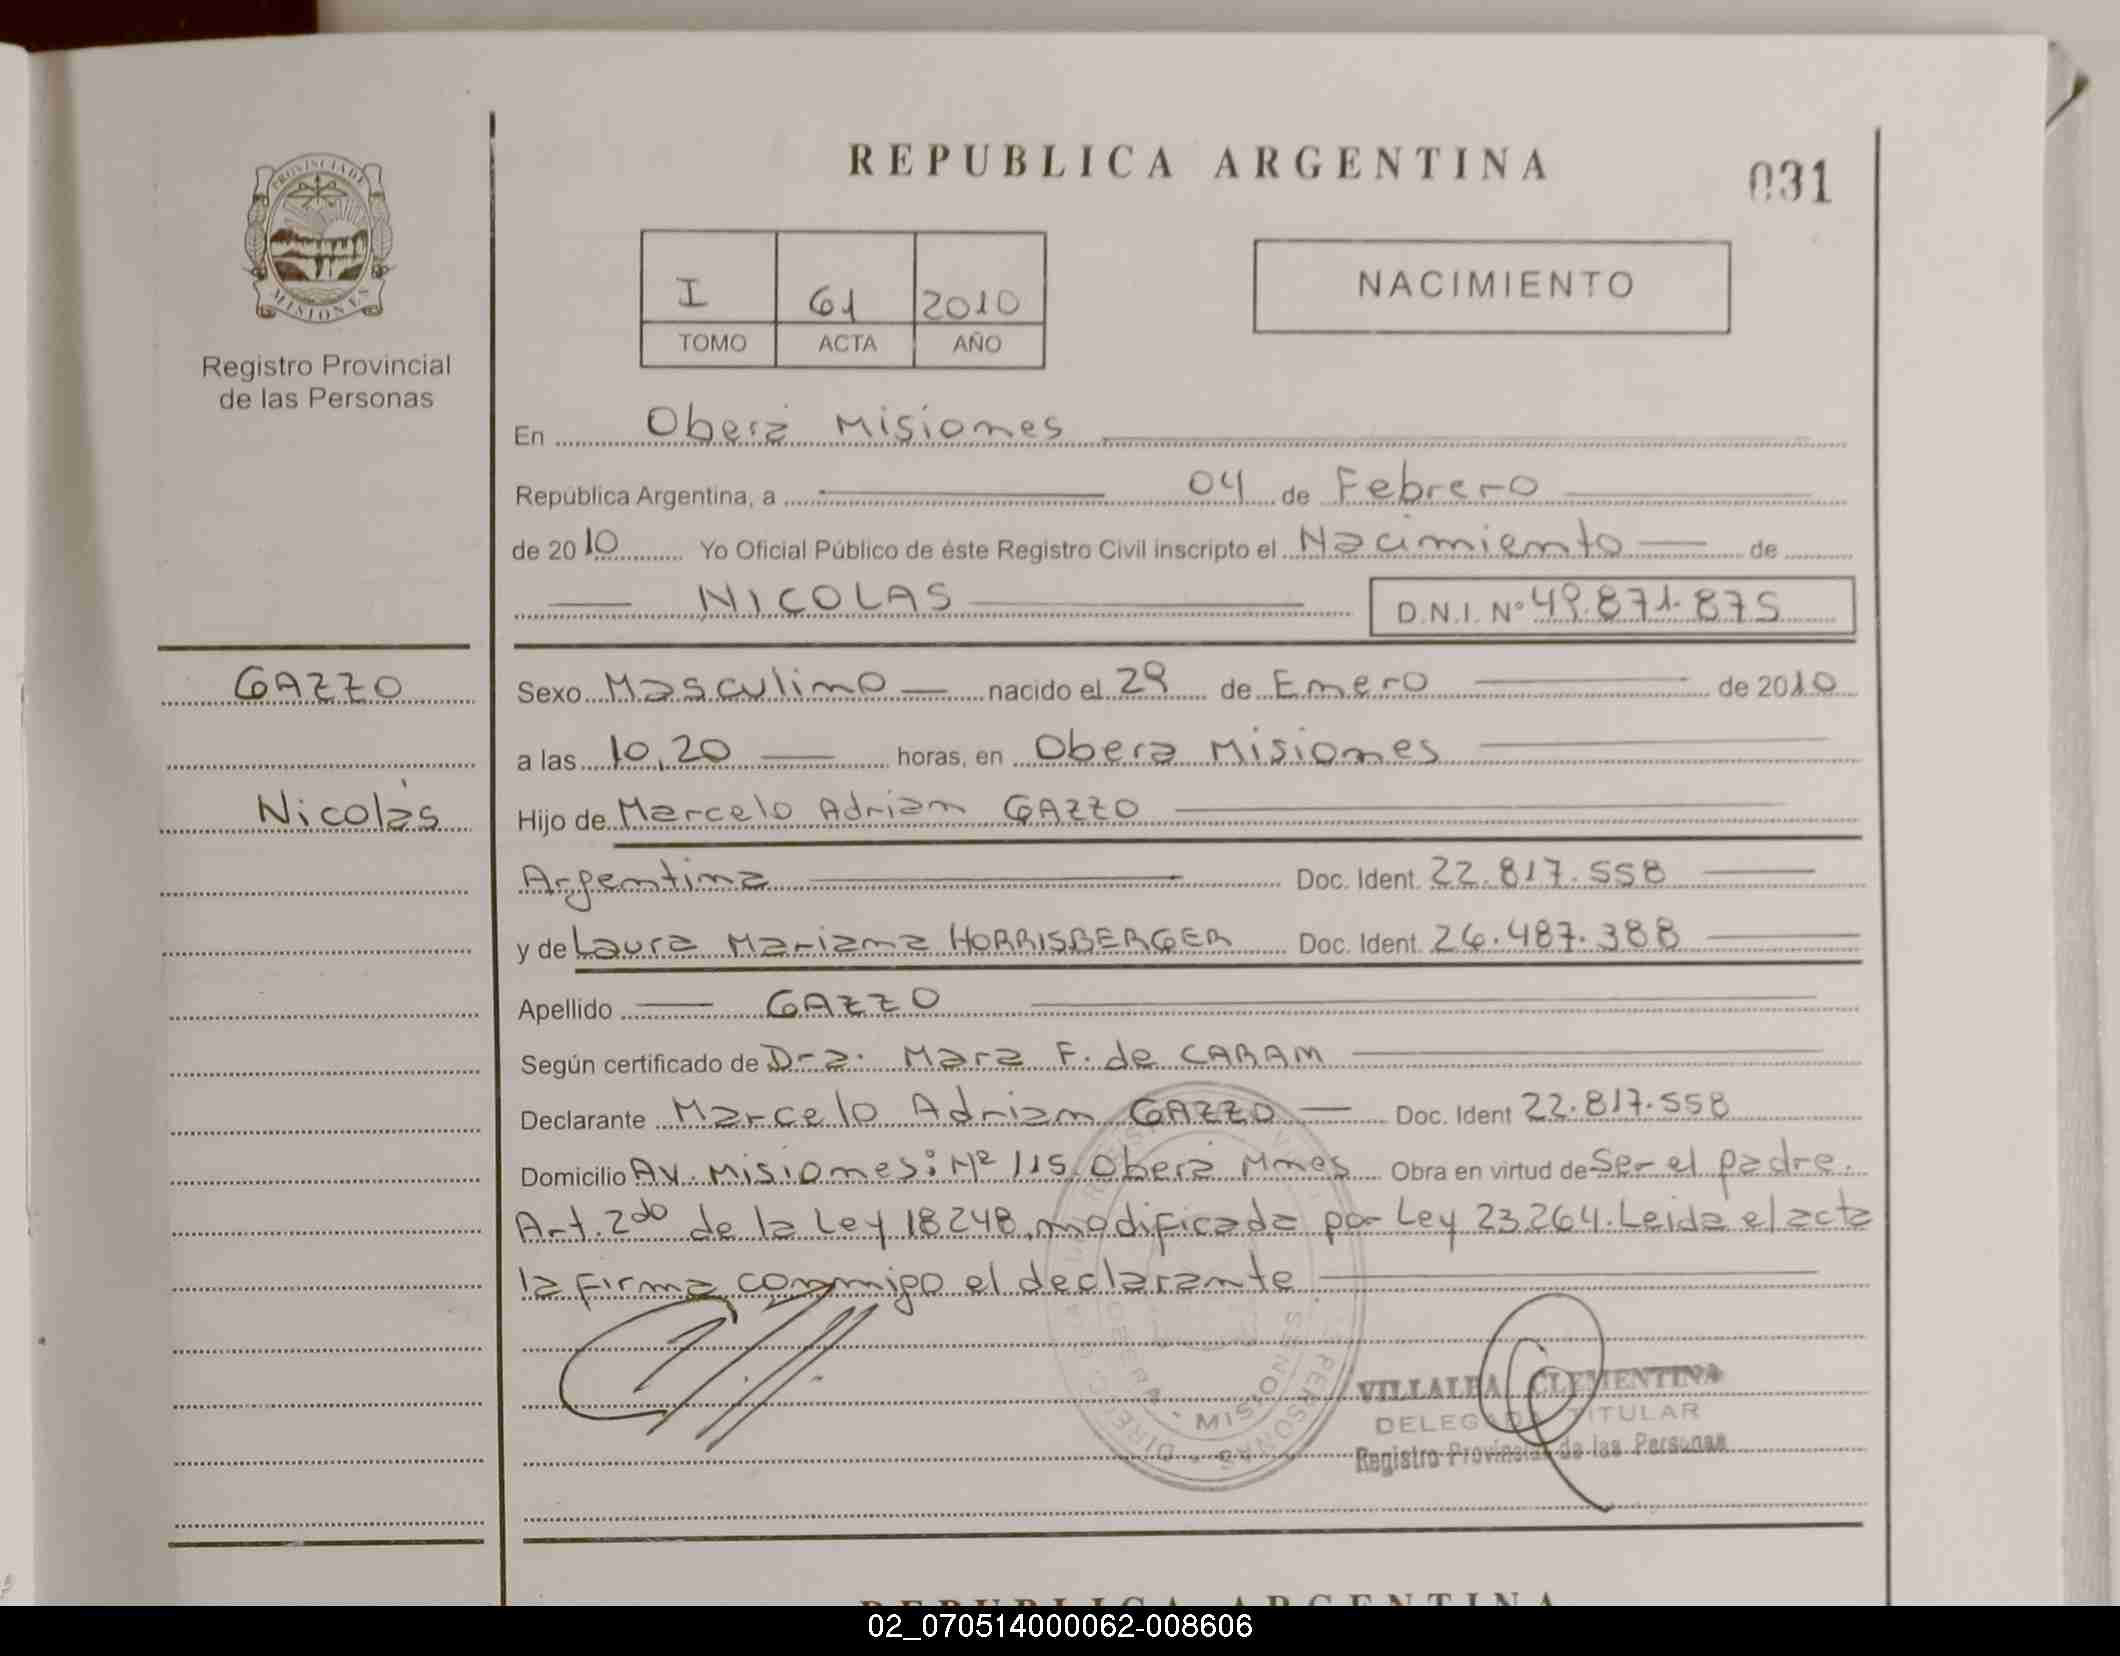 PROVINCIA DE
MISIONES
Registro Provincial
de las Personas
REPUBLICA ARGENTINA
031
I 61 2010
TOMO ACTA AÑO
NACIMIENTO
En Oberá Misiones
República Argentina, a 04 de Febrero
de 2010 Yo Oficial Público de éste Registro Civil inscripto el Nacimiento de
NICOLAS D.N.I. Nº 49.871.875
GAZZO
Nicolás
Sexo Masculino nacido el 29 de Enero de 2010
a las 10,20 horas, en Obera Misiones
Hijo de Marcelo Adrian GAZZO
Argentina Doc. Ident. 22.817.558
y de Laura Mariana HORRISBERGER Doc. Ident. 26.487.388
Apellido GAZZO
Según certificado de Dra. Mara F. de CARAM
Declarante Marcelo Adrian GAZZO Doc. Ident 22.817.558
Domicilio Av. Misiones: Nº 115 Oberá Mnes Obra en virtud de Ser el padre.
Art. 2do de la Ley 18248, modificada por Ley 23.264. Leida el acta
la firma conmigo el declarante
MISIONES
VILLALBA CLEMENTINA
DELEGADA TITULAR
Registro Provincial de las Personas
REPUBLICA ARGENTINA
02_070514000062-008606